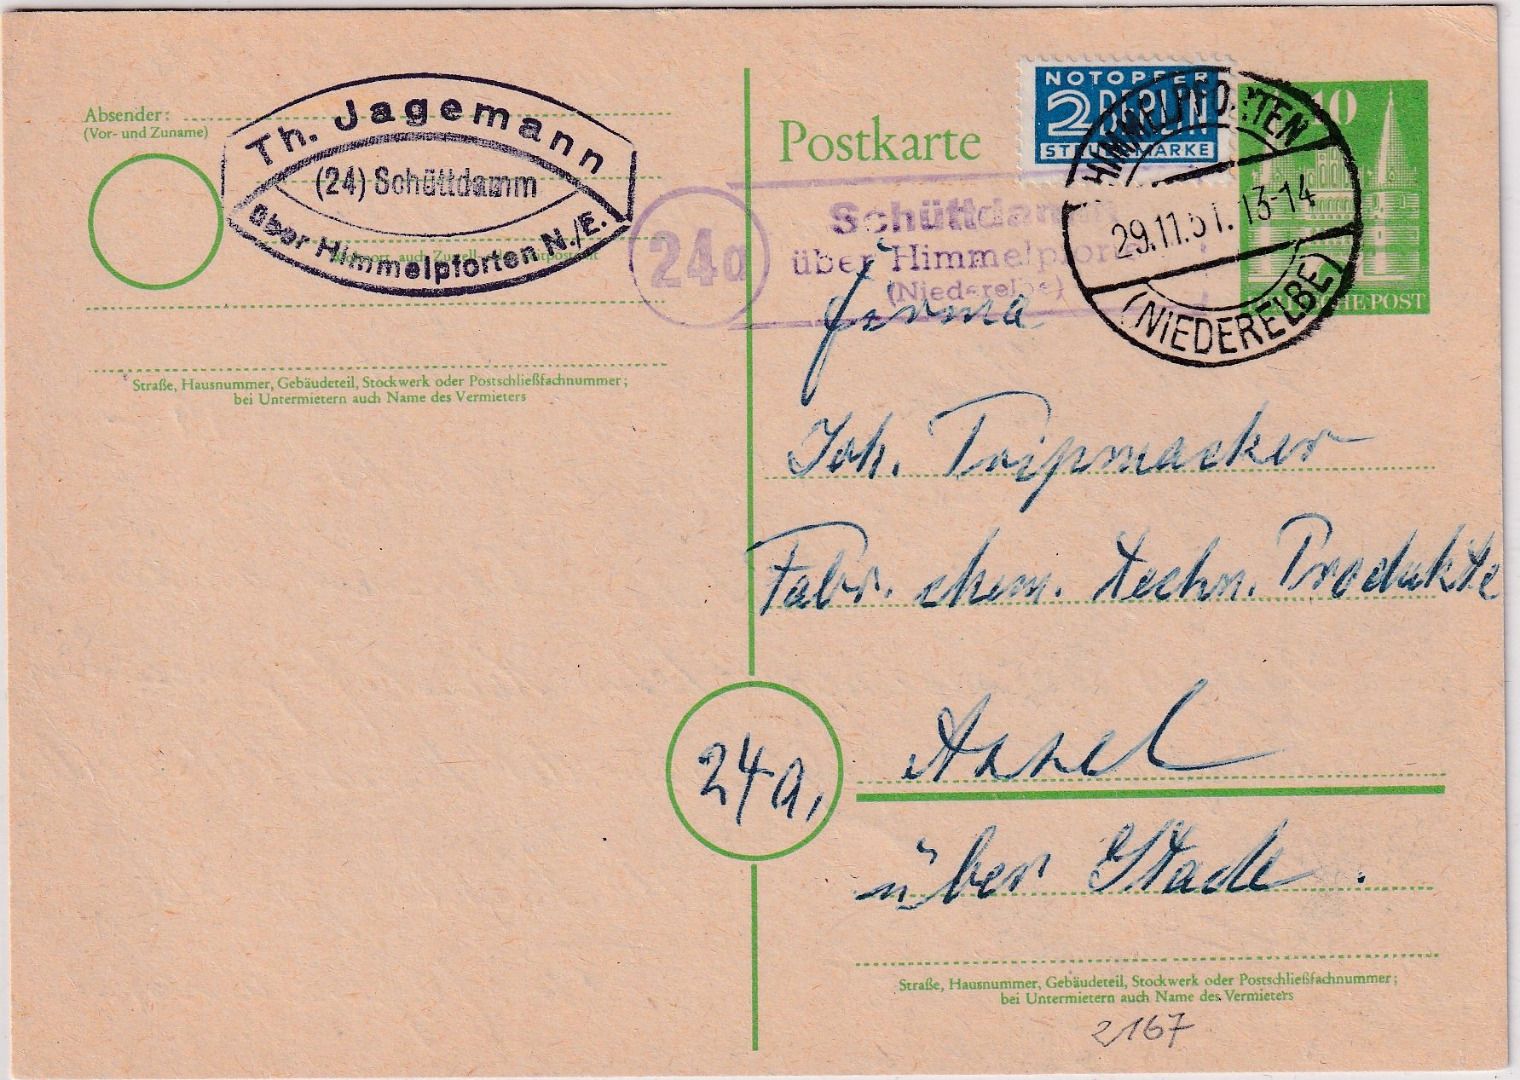 Absender:
(Vor- und Zuname)
Th. Jagemann
(24) Schüttdamm
über Himmelpforten N./E.
Straße, Hausnummer, Gebäudeteil, Stockwerk oder Postschließfachnummer;
bei Untermietern auch Name des Vermieters
Postkarte
NOTOPFER
2 BERLIN
STEUERMARKE
HIMMELPFORTEN
29.11.51.13-14
(NIEDERELBE)
10
DEUTSCHE POST
24a
Schüttdamm
über Himmelpforten
(Niederelbe)
Firma
Joh. Tripmacker
Fabr. chem. techn. Produkte
24a,
Assel
über Stade.
Straße, Hausnummer, Gebäudeteil, Stockwerk oder Postschließfachnummer;
bei Untermietern auch Name des Vermieters
2167